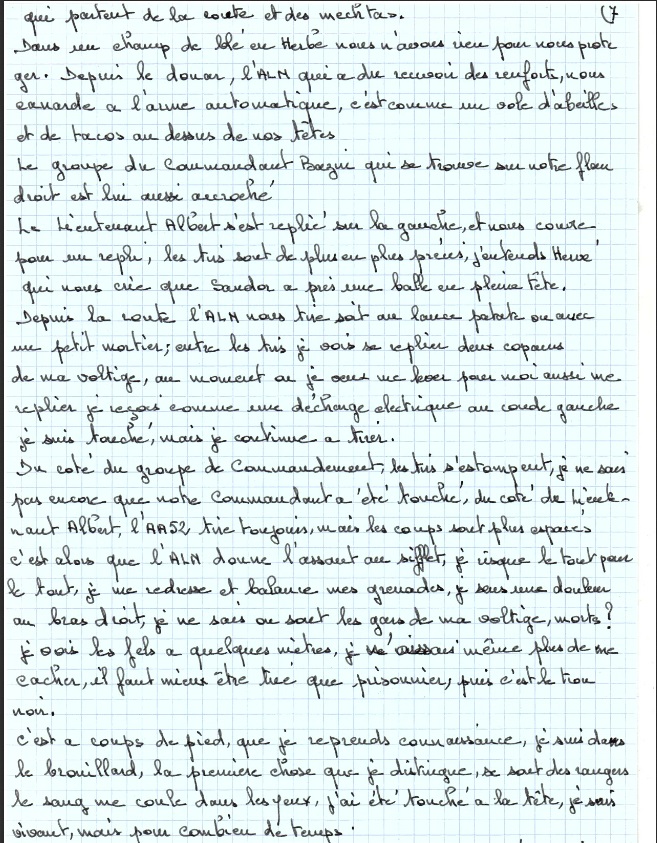 qui partent de la route et des mechtas. (7
Dans un champ de blé en Herbe nous n'avons rien pour nous prote
ger. Depuis le douar, l'ALN qui a du recevoir des renforts, nous
canarde a l'arme automatique, c'est comme un vole d'abeilles
et de tacos au dessus de nos têtes
Le groupe du Commandant Bazni qui se trouve sur notre flan
droit est lui aussi accroché
Le Lieutenant Albert s'est replié sur la gauche, et nous couvre
pour un repli, les tirs sont de plus en plus précis, j'entends Hervé
qui nous crie que Sandor a pris une balle en pleine tête.
Depuis la route l'ALN nous tire soit au lance patate ou avec
un petit mortier; entre les tirs je vois se replier deux copains
de ma voltige, au moment ou je veux me lever pour moi aussi me
replier je reçois comme une décharge electrique au coude gauche
je suis touché, mais je continue a tirer.
Du coté du groupe de Commandement, les tirs s'estompent, je ne sais
pas encore que notre Commandant a été touché, du coté de Lieute-
nant Albert, l'AA52 tire toujours, mais les coups sont plus espacés
c'est alors que l'ALN donne l'assaut au sifflet, je risque le tout pour
le tout, je me redresse et balance mes grenades, je sens une douleur
au bras droit, je ne sais ou sont les gars de ma voltige, morts?
je vois les fels a quelques mètres, je même plus de me
cacher, il faut mieux être tué que prisonnier, puis c'est le trou
noir.
c'est a coups de pied, que je reprends connaissance, je suis dans
le brouillard, la première chose que je distingue, se sont des rangers
le sang me coule dans les yeux, j'ai été touché a la tête, je suis
vivant, mais pour combien de temps.